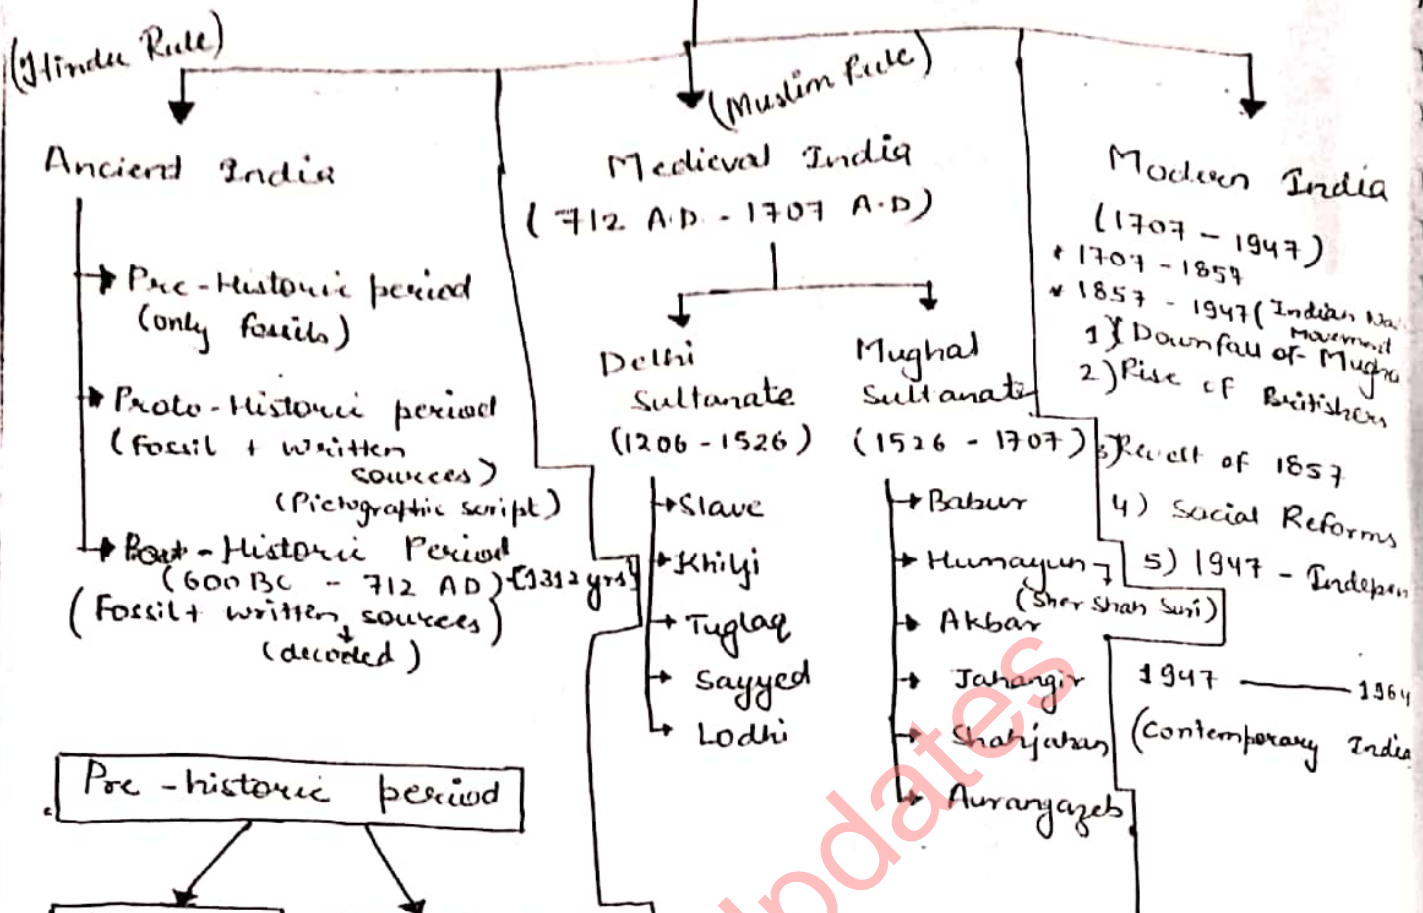 (Hindu Rule)
Ancient India
Pre-Historic period
(only fossils)
Proto-Historic period
(Fossil + written
sources)
(Pictographic script)
Post-Historic Period
(600 BC - 712 AD) [1312 yrs]
(Fossil + written sources)
(decoded)
Pre-historic period
(Muslim Rule)
Medieval India
(712 A.D. - 1707 A.D)
Delhi
Sultanate
(1206 - 1526)
Slave
Khilji
Tuglaq
Sayyed
Lodhi
Mughal
Sultanate
(1526 - 1707)
Babur
Humayun
(Sher Shah Suri)
Akbar
Jahangir
Shahjahan
Aurangazeb
Modern India
(1707 - 1947)
* 1707 - 1857
* 1857 - 1947 (Indian Na
Movement
1) Downfall of Mugha
2) Rise of Britishers
3) Revolt of 1857
4) Social Reforms
5) 1947 - Indepen
1947 — 1964
(Contemporary India
pdates